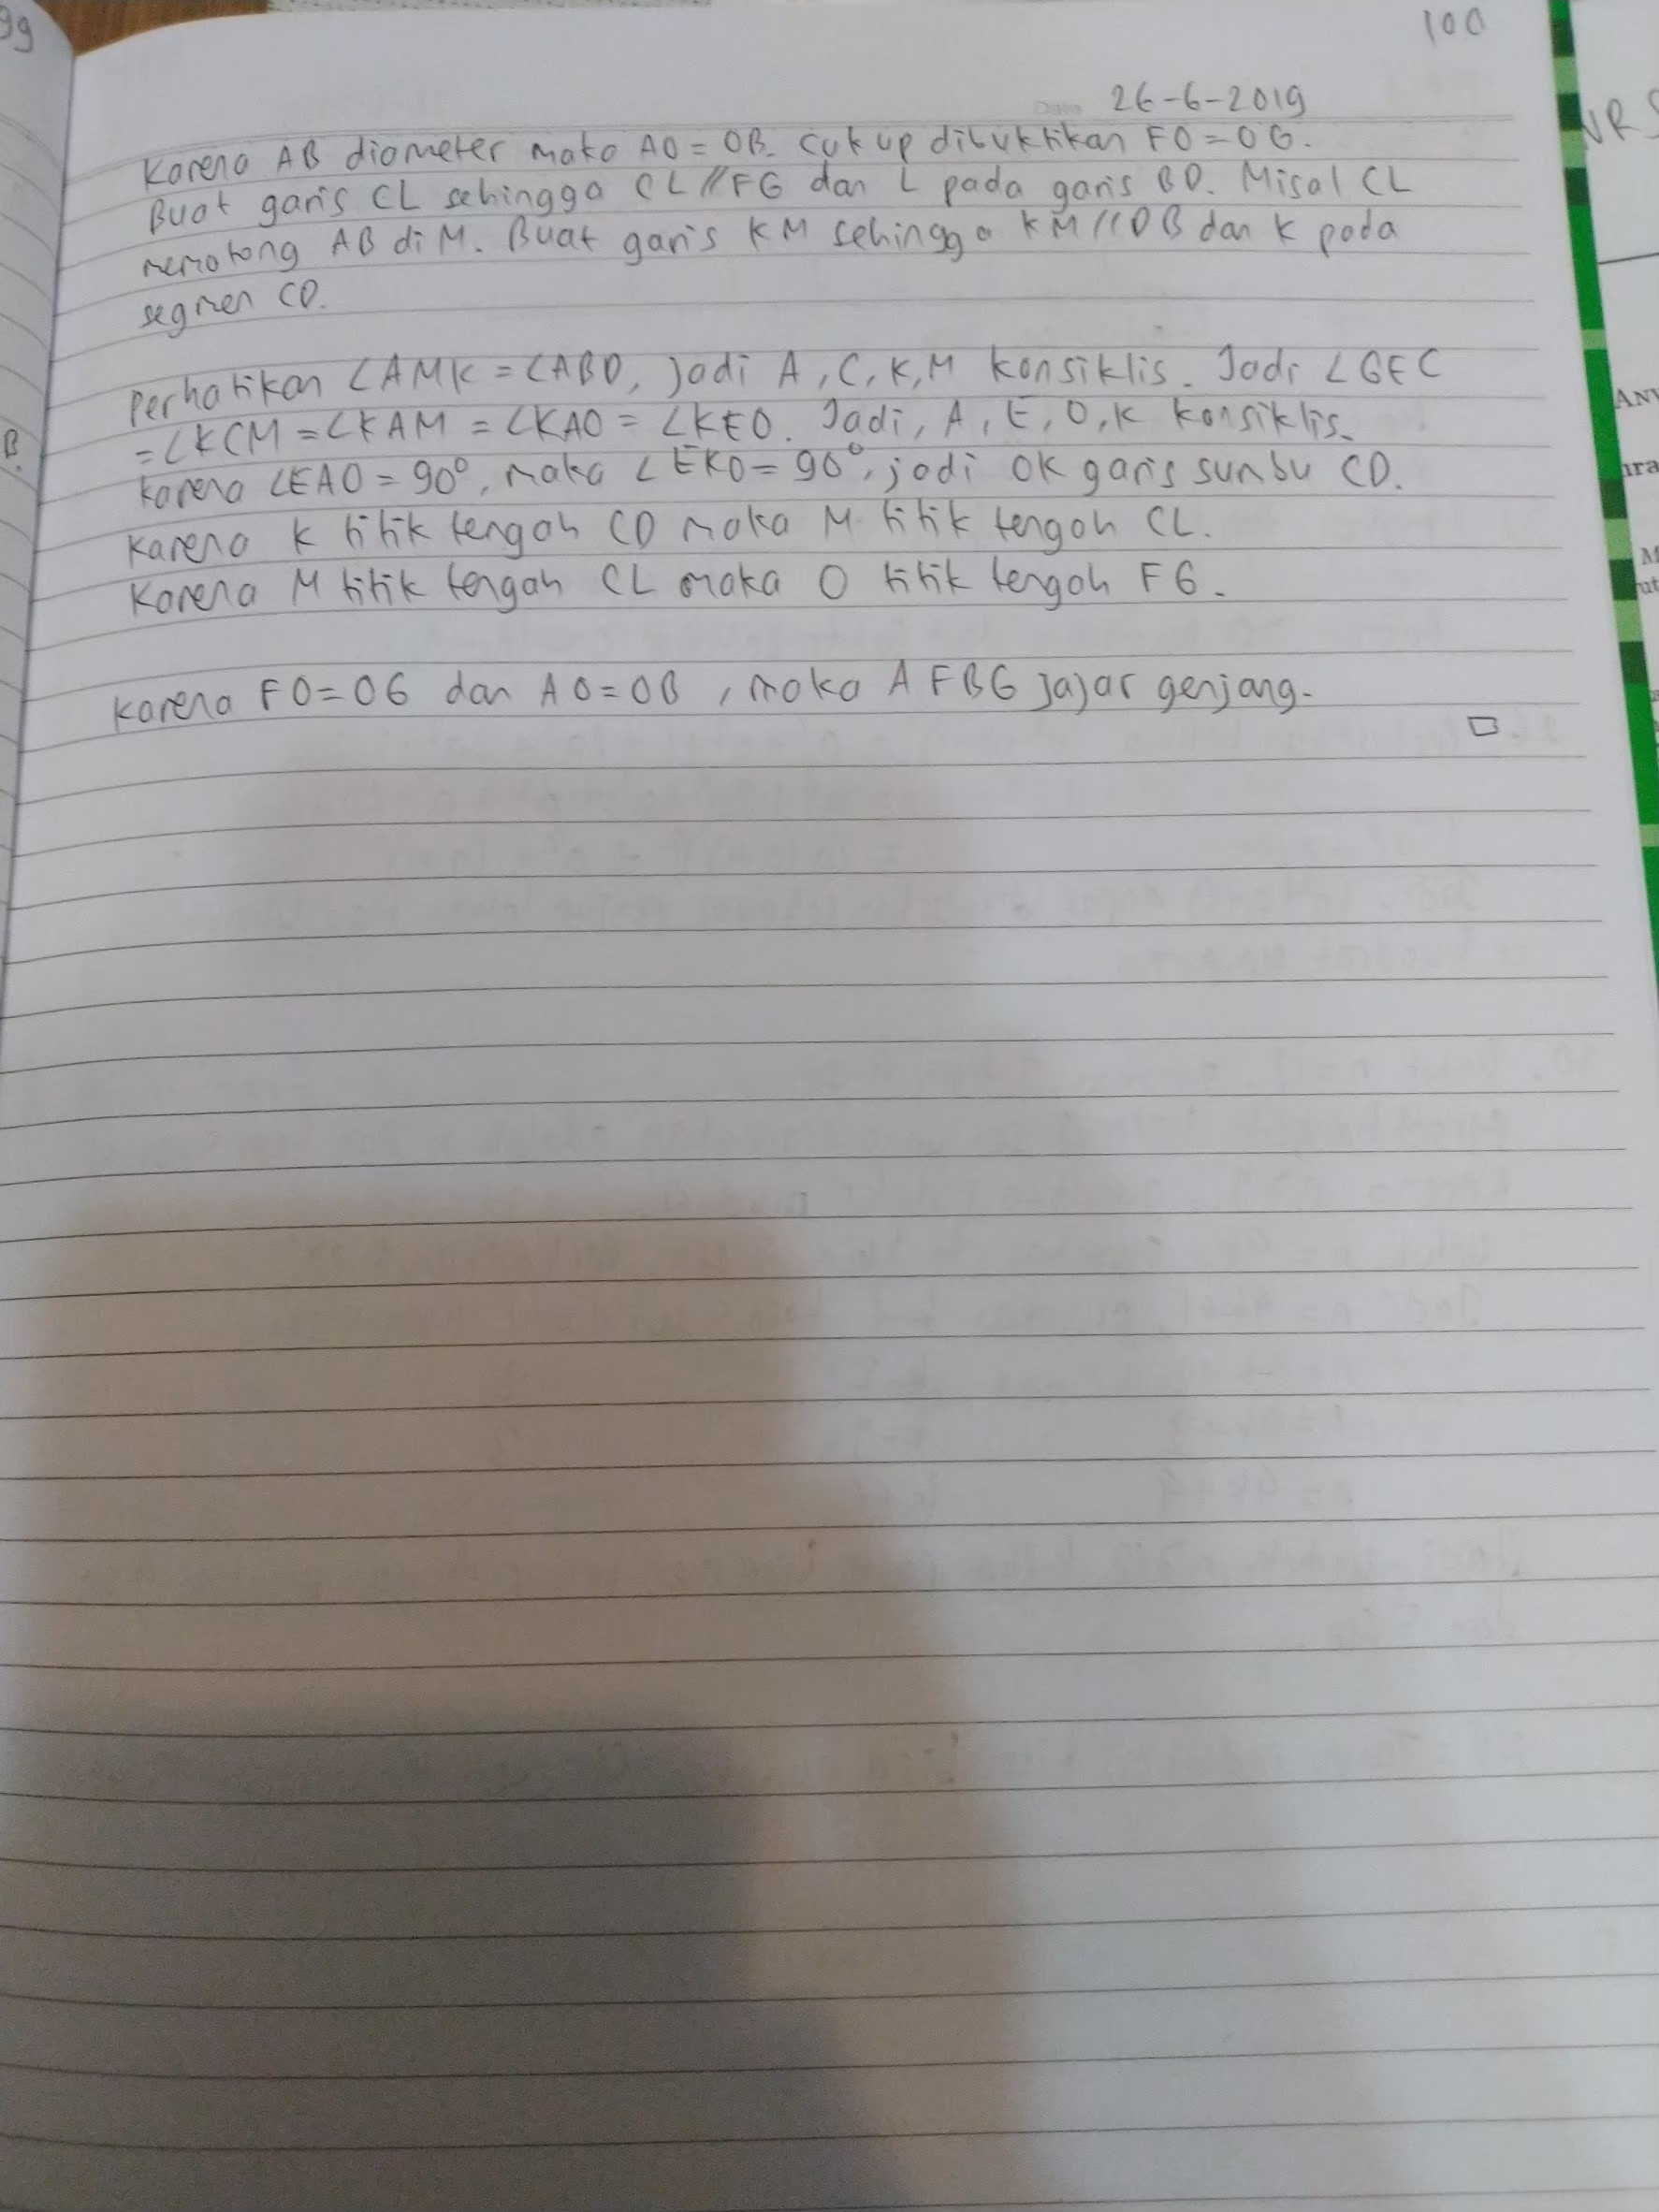 99
100
Date 26-6-2019
Karena AB diameter maka AO = OB. Cukup dibuktikan FO = OG.
Buat garis CL sehingga CL // FG dan L pada garis BD. Misal CL
memotong AB di M. Buat garis KM sehingga KM // DB dan K pada
segmen CD.
Perhatikan ∠AMK = ∠ABD, jadi A, C, K, M konsiklis. Jadi ∠GEC
= ∠KCM = ∠KAM = ∠KAO = ∠KEO. Jadi, A, E, O, K konsiklis.
Karena ∠EAO = 90°, maka ∠EKO = 90°, jadi OK garis sumbu CD.
Karena K titik tengah CD maka M titik tengah CL.
Karena M titik tengah CL maka O titik tengah FG.
Karena FO = OG dan AO = OB, maka AFBG jajar genjang.
□
B.